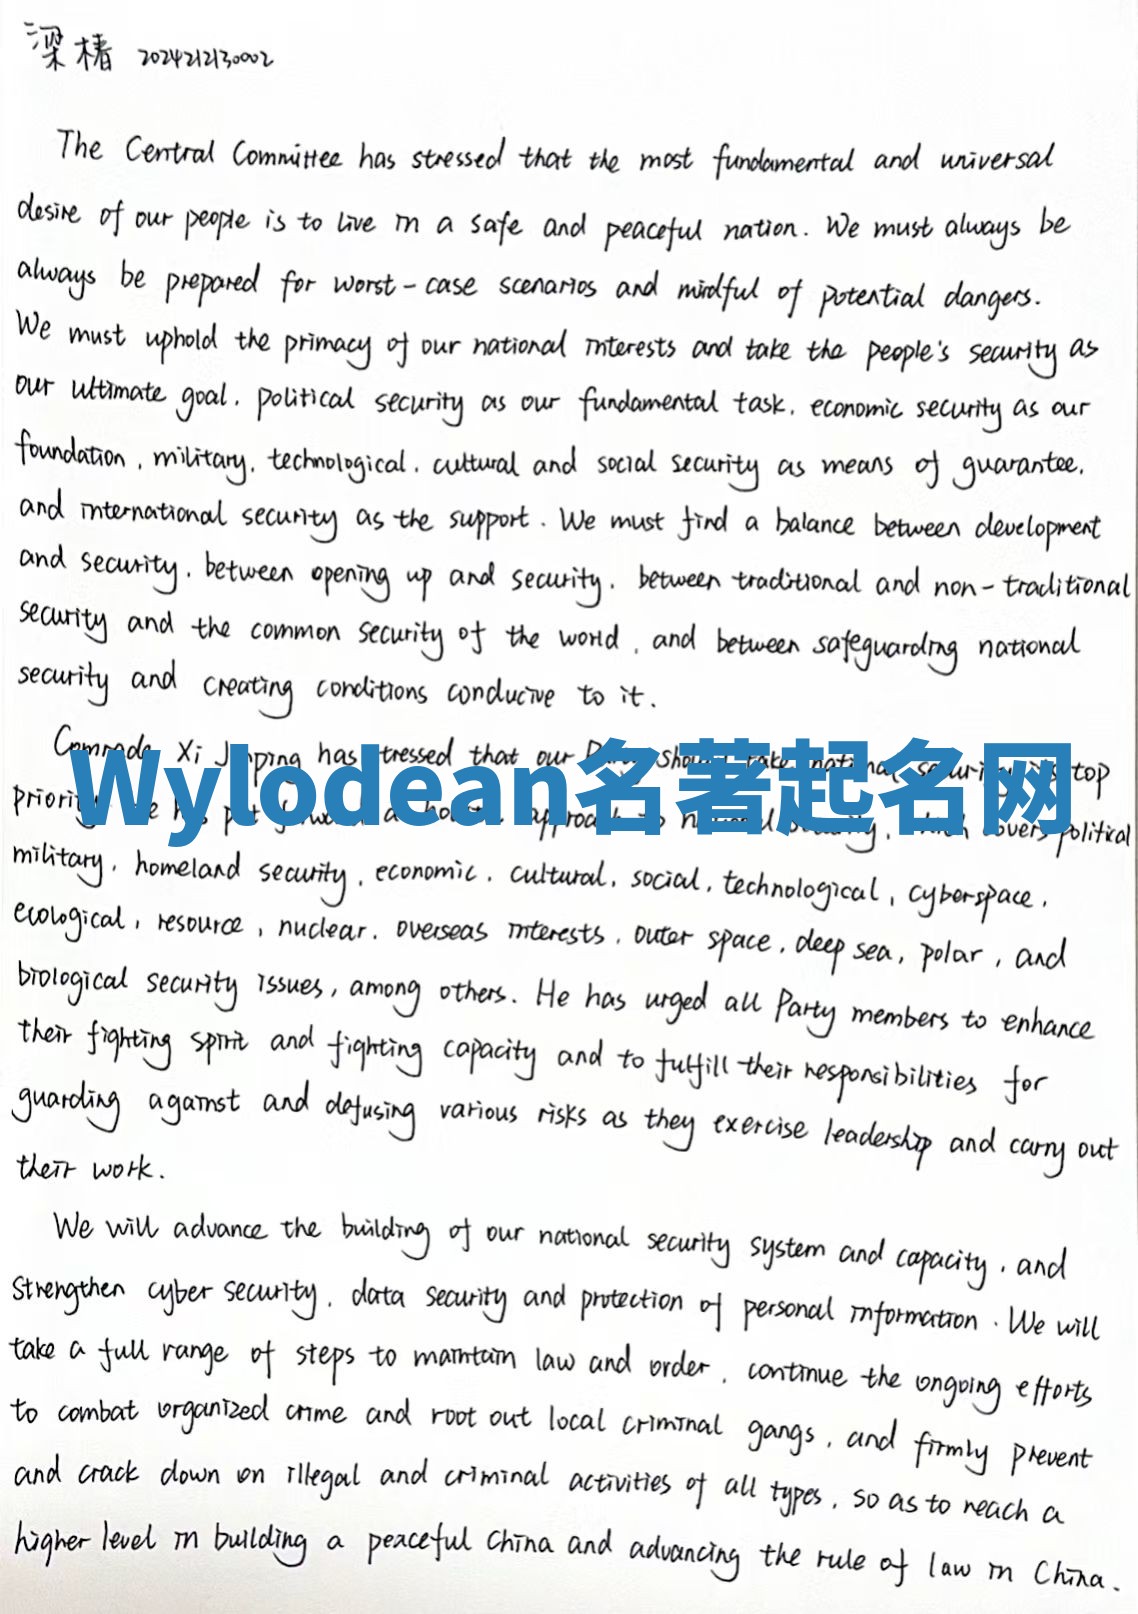 梁椿 2024212130002
The Central Committee has stressed that the most fundamental and universal
desire of our people is to live in a safe and peaceful nation. We must always be
always be prepared for worst-case scenarios and mindful of potential dangers.
We must uphold the primacy of our national interests and take the people's security as
our ultimate goal, political security as our fundamental task, economic security as our
foundation, military, technological, cultural and social security as means of guarantee,
and international security as the support. We must find a balance between development
and security, between opening up and security, between traditional and non-traditional
security and the common security of the world, and between safeguarding national
security and creating conditions conducive to it.
Comrade Xi Jinping has stressed that our Party should take national security its top
Wylodean名著起名网
priority. He has put forward a holistic approach to national security, which covers political
military, homeland security, economic, cultural, social, technological, cyberspace,
ecological, resource, nuclear, overseas interests, outer space, deep sea, polar, and
biological security issues, among others. He has urged all Party members to enhance
their fighting spirit and fighting capacity and to fulfill their responsibilities for
guarding against and defusing various risks as they exercise leadership and carry out
their work.
We will advance the building of our national security system and capacity, and
strengthen cyber security, data security and protection of personal information. We will
take a full range of steps to maintain law and order, continue the ongoing efforts
to combat organized crime and root out local criminal gangs, and firmly prevent
and crack down on illegal and criminal activities of all types, so as to reach a
higher level in building a peaceful China and advancing the rule of law in China.